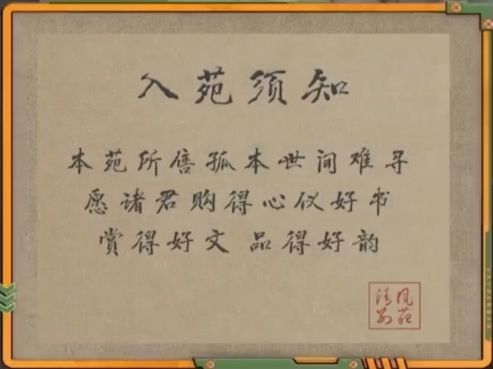 入苑须知
本苑所售孤本世间难寻
愿诸君购得心仪好书
赏得好文 品得好韵
清风
别苑